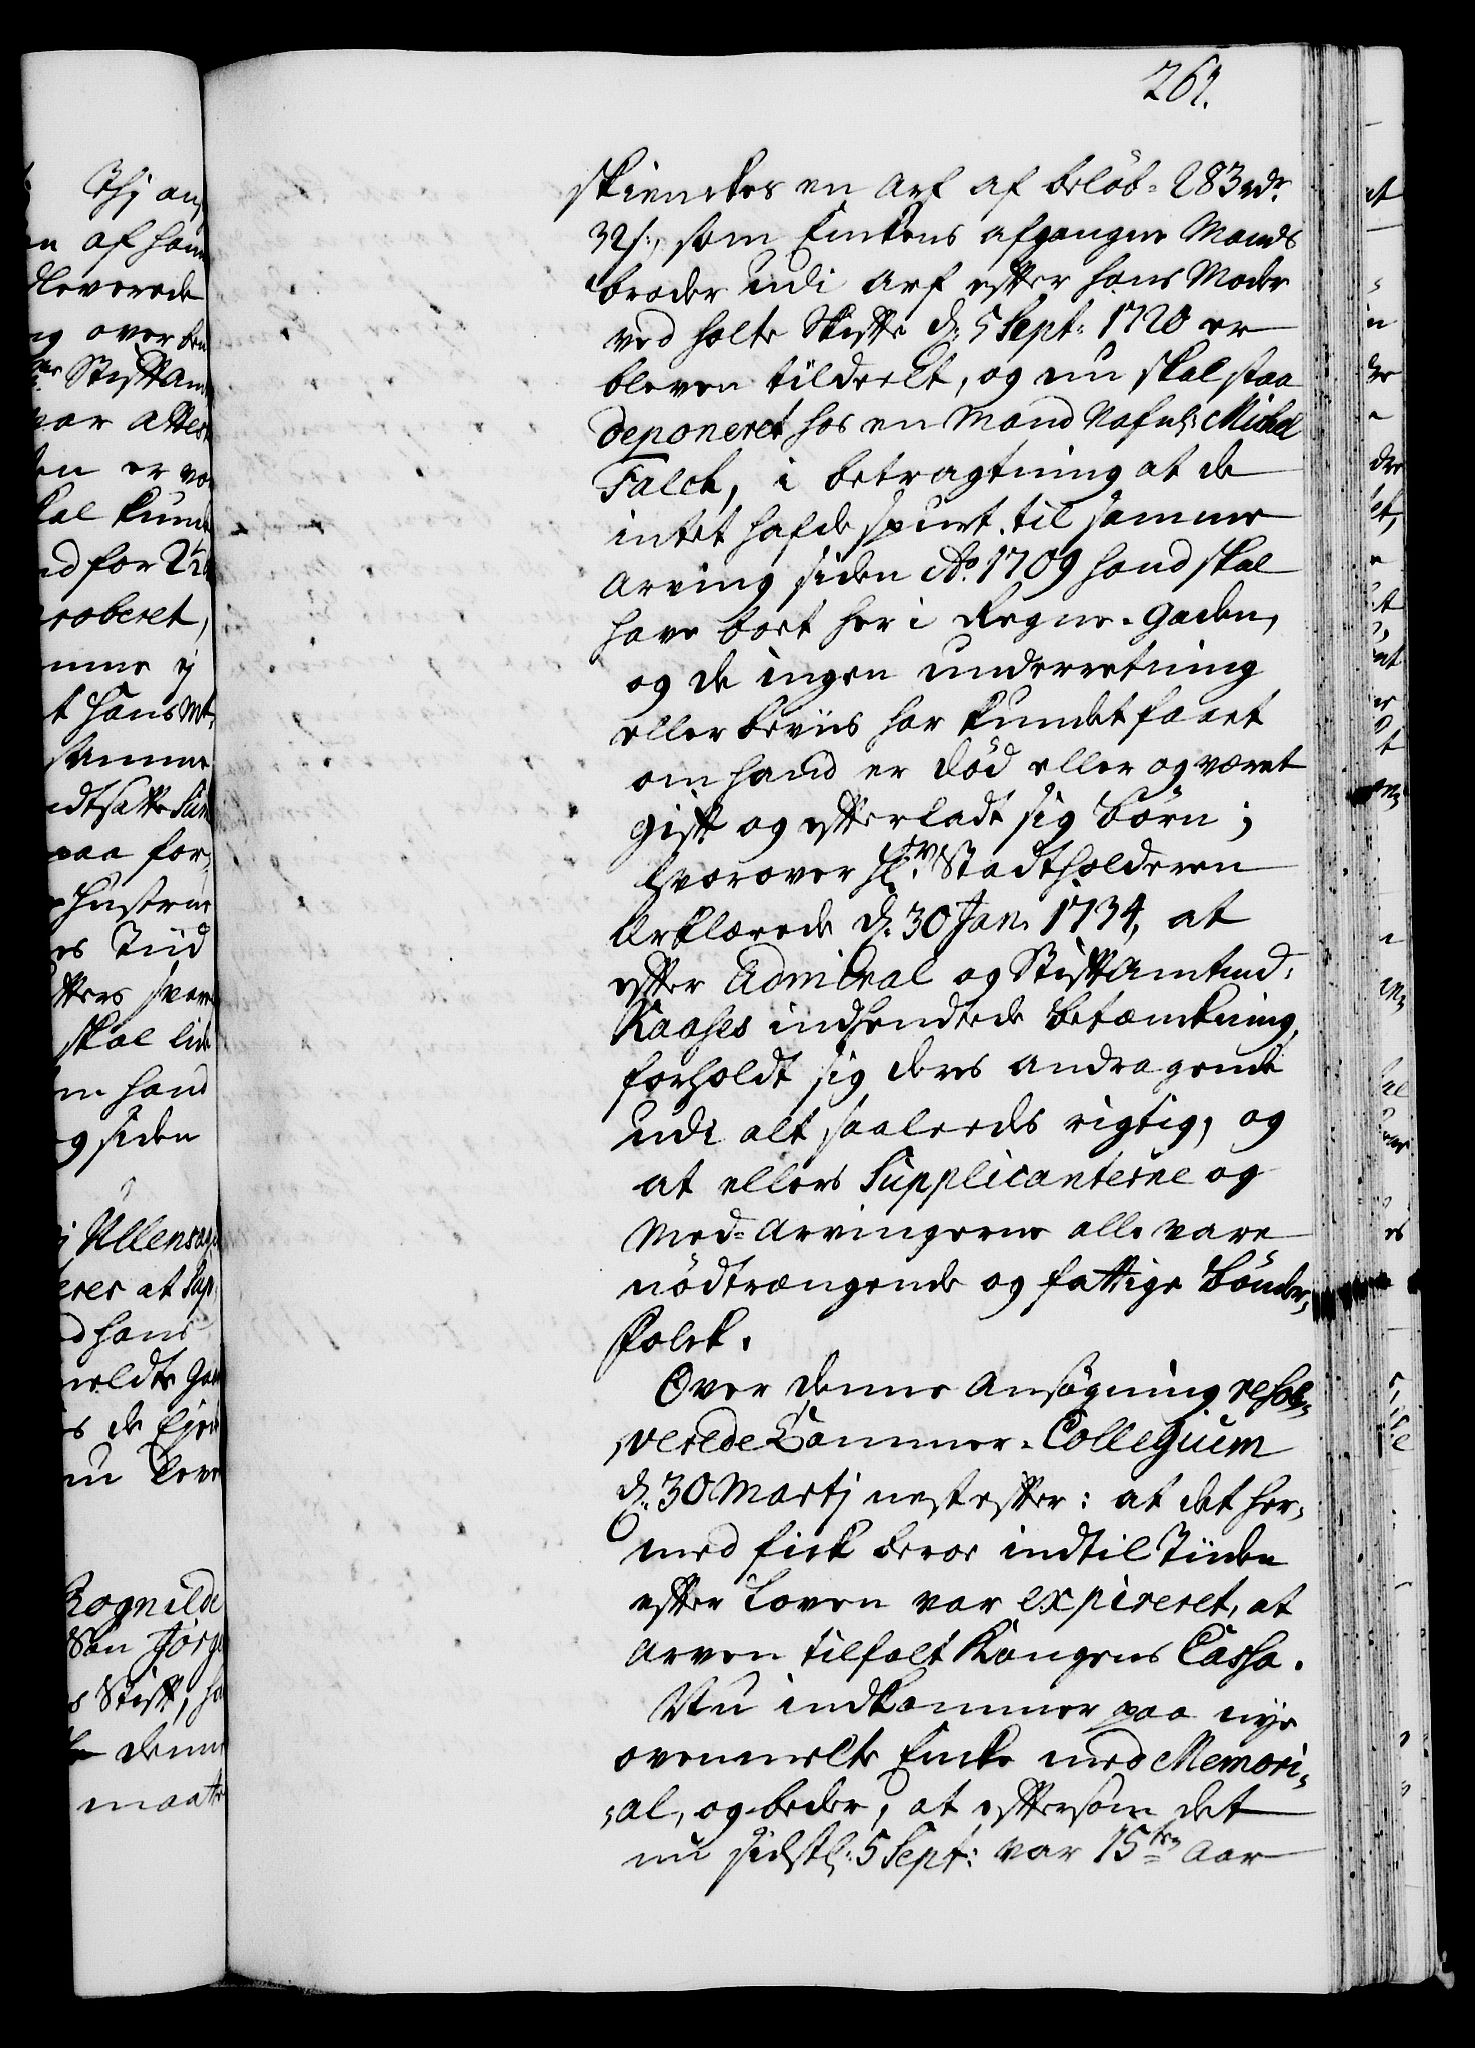 261.
skienckes en Arf af beløb= 283 rdr
32 s:, som Enkens afgangne Mands
broder udi Arf efter hans Moder
ved holte Skifte d: 5 Sept: 1720 er
bleven tildeelt, og nu skal staa
deponeret hos en Mand Nafnl: Michel
Falch, i betragtning at de
intet hafde spurt til samme
Arving siden Ao. 1709 hand skal
have boet her i Regne-Gaden,
og de ingen underretning
eller beviis har kundet faaet
om hand er død eller og været
gift og efterladt sig børn;
hvorover Hr. Stadtholderen
Erklærede d: 30 Jan. 1734, at
efter Admiral og Stiftamtmd:
Kaases indsendte betænkning,
forholdt sig deres andragende
udi alt saaleedes rigtig, og
at ellers Supplicanterne og
Med-Arvingerne alle vare
nødtrængende og fattige bønder,
folck.
Over denne Ansøgning resol-
verede Cammer-Collegium
d: 30 Martj nest efter: at det her,
med fick beroe indtil Tiiden
efter Loven var expireret, at
Arven tilfalt Kongens Cassa.
Nu indkommer paa nye
ovenmelte Encke med Memori-
al, og beder, at eftersom det
nu sidstl: 5 Sept: var 15ten Aar